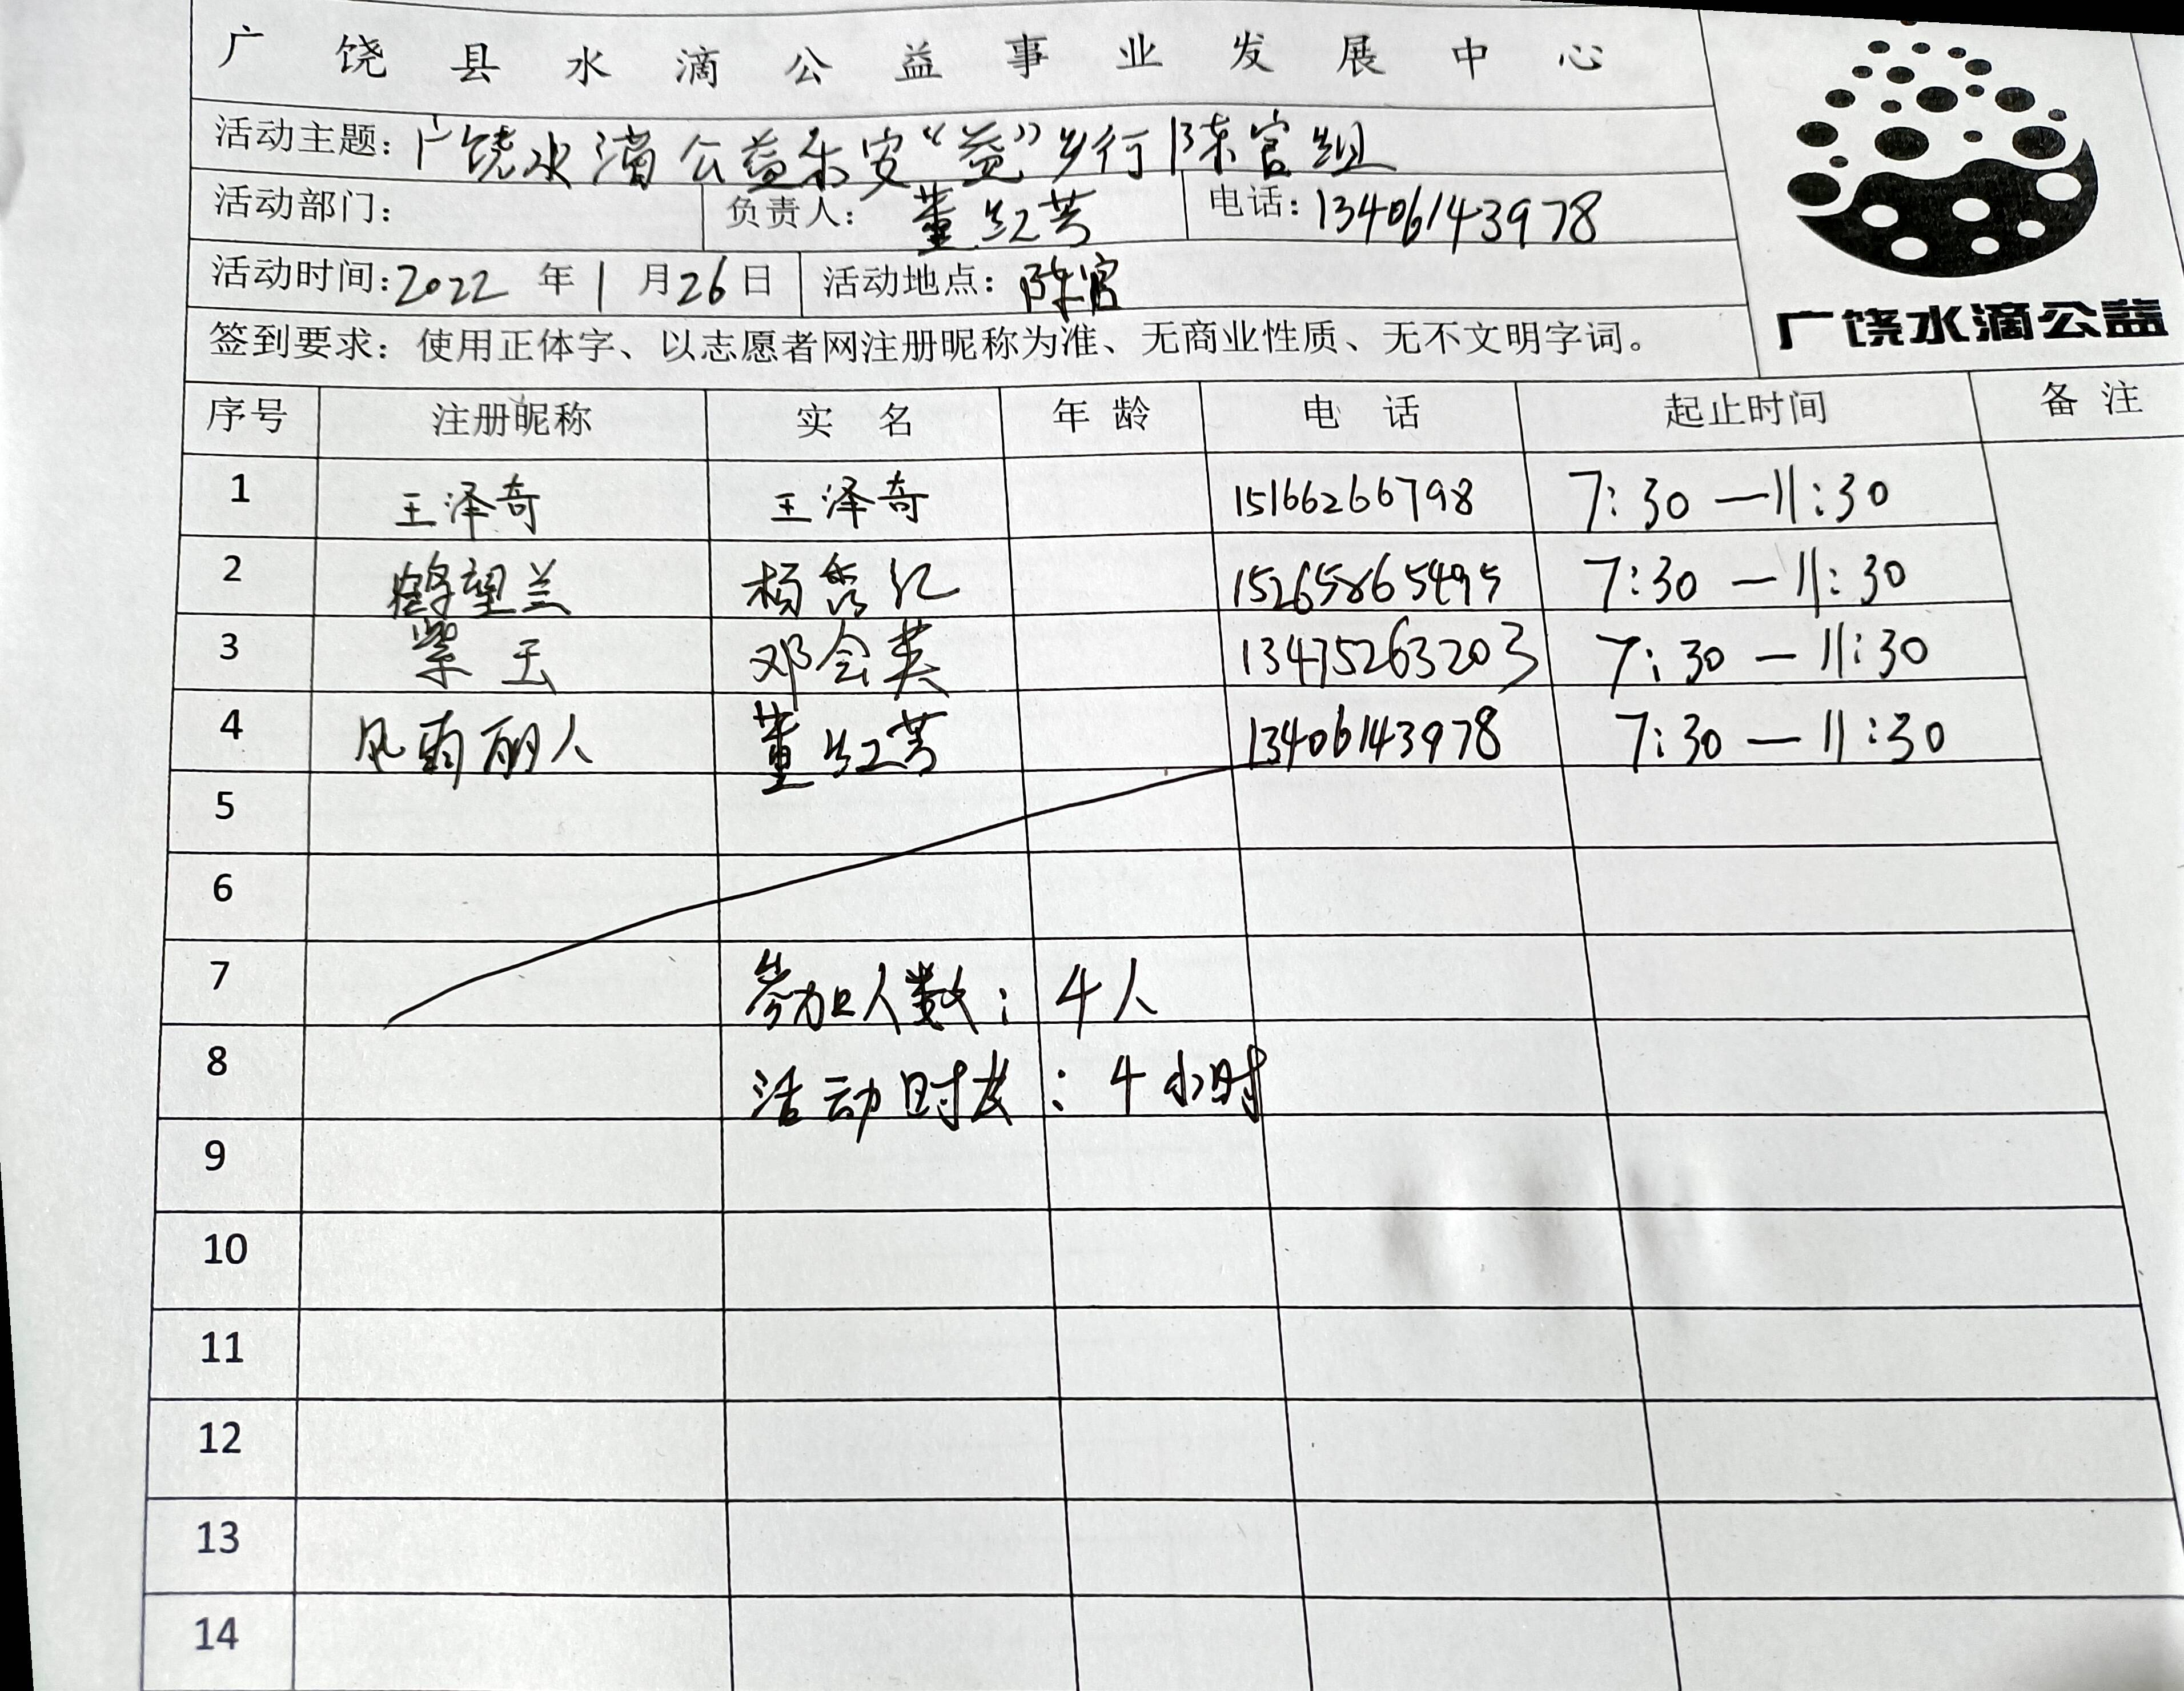 广饶县水滴公益事业发展中心
活动主题：广饶水滴公益乐安“益”步行陈官组
活动部门： 负责人：董红芳 电话：13406143978
活动时间：2022年1月26日 活动地点：陈官
签到要求：使用正体字、以志愿者网注册昵称为准、无商业性质、无不文明字词。
广饶水滴公益
序号 注册昵称 实名 年龄 电话 起止时间 备注
1 王泽奇 王泽奇 15166266798 7:30—11:30
2 鹤望兰 杨秀红 15265865495 7:30—11:30
3 紫玉 邓会英 13475263203 7:30—11:30
4 风雨丽人 董红芳 13406143978 7:30—11:30
5
6
7 参加人数：4人
8 活动时长：4小时
9
10
11
12
13
14